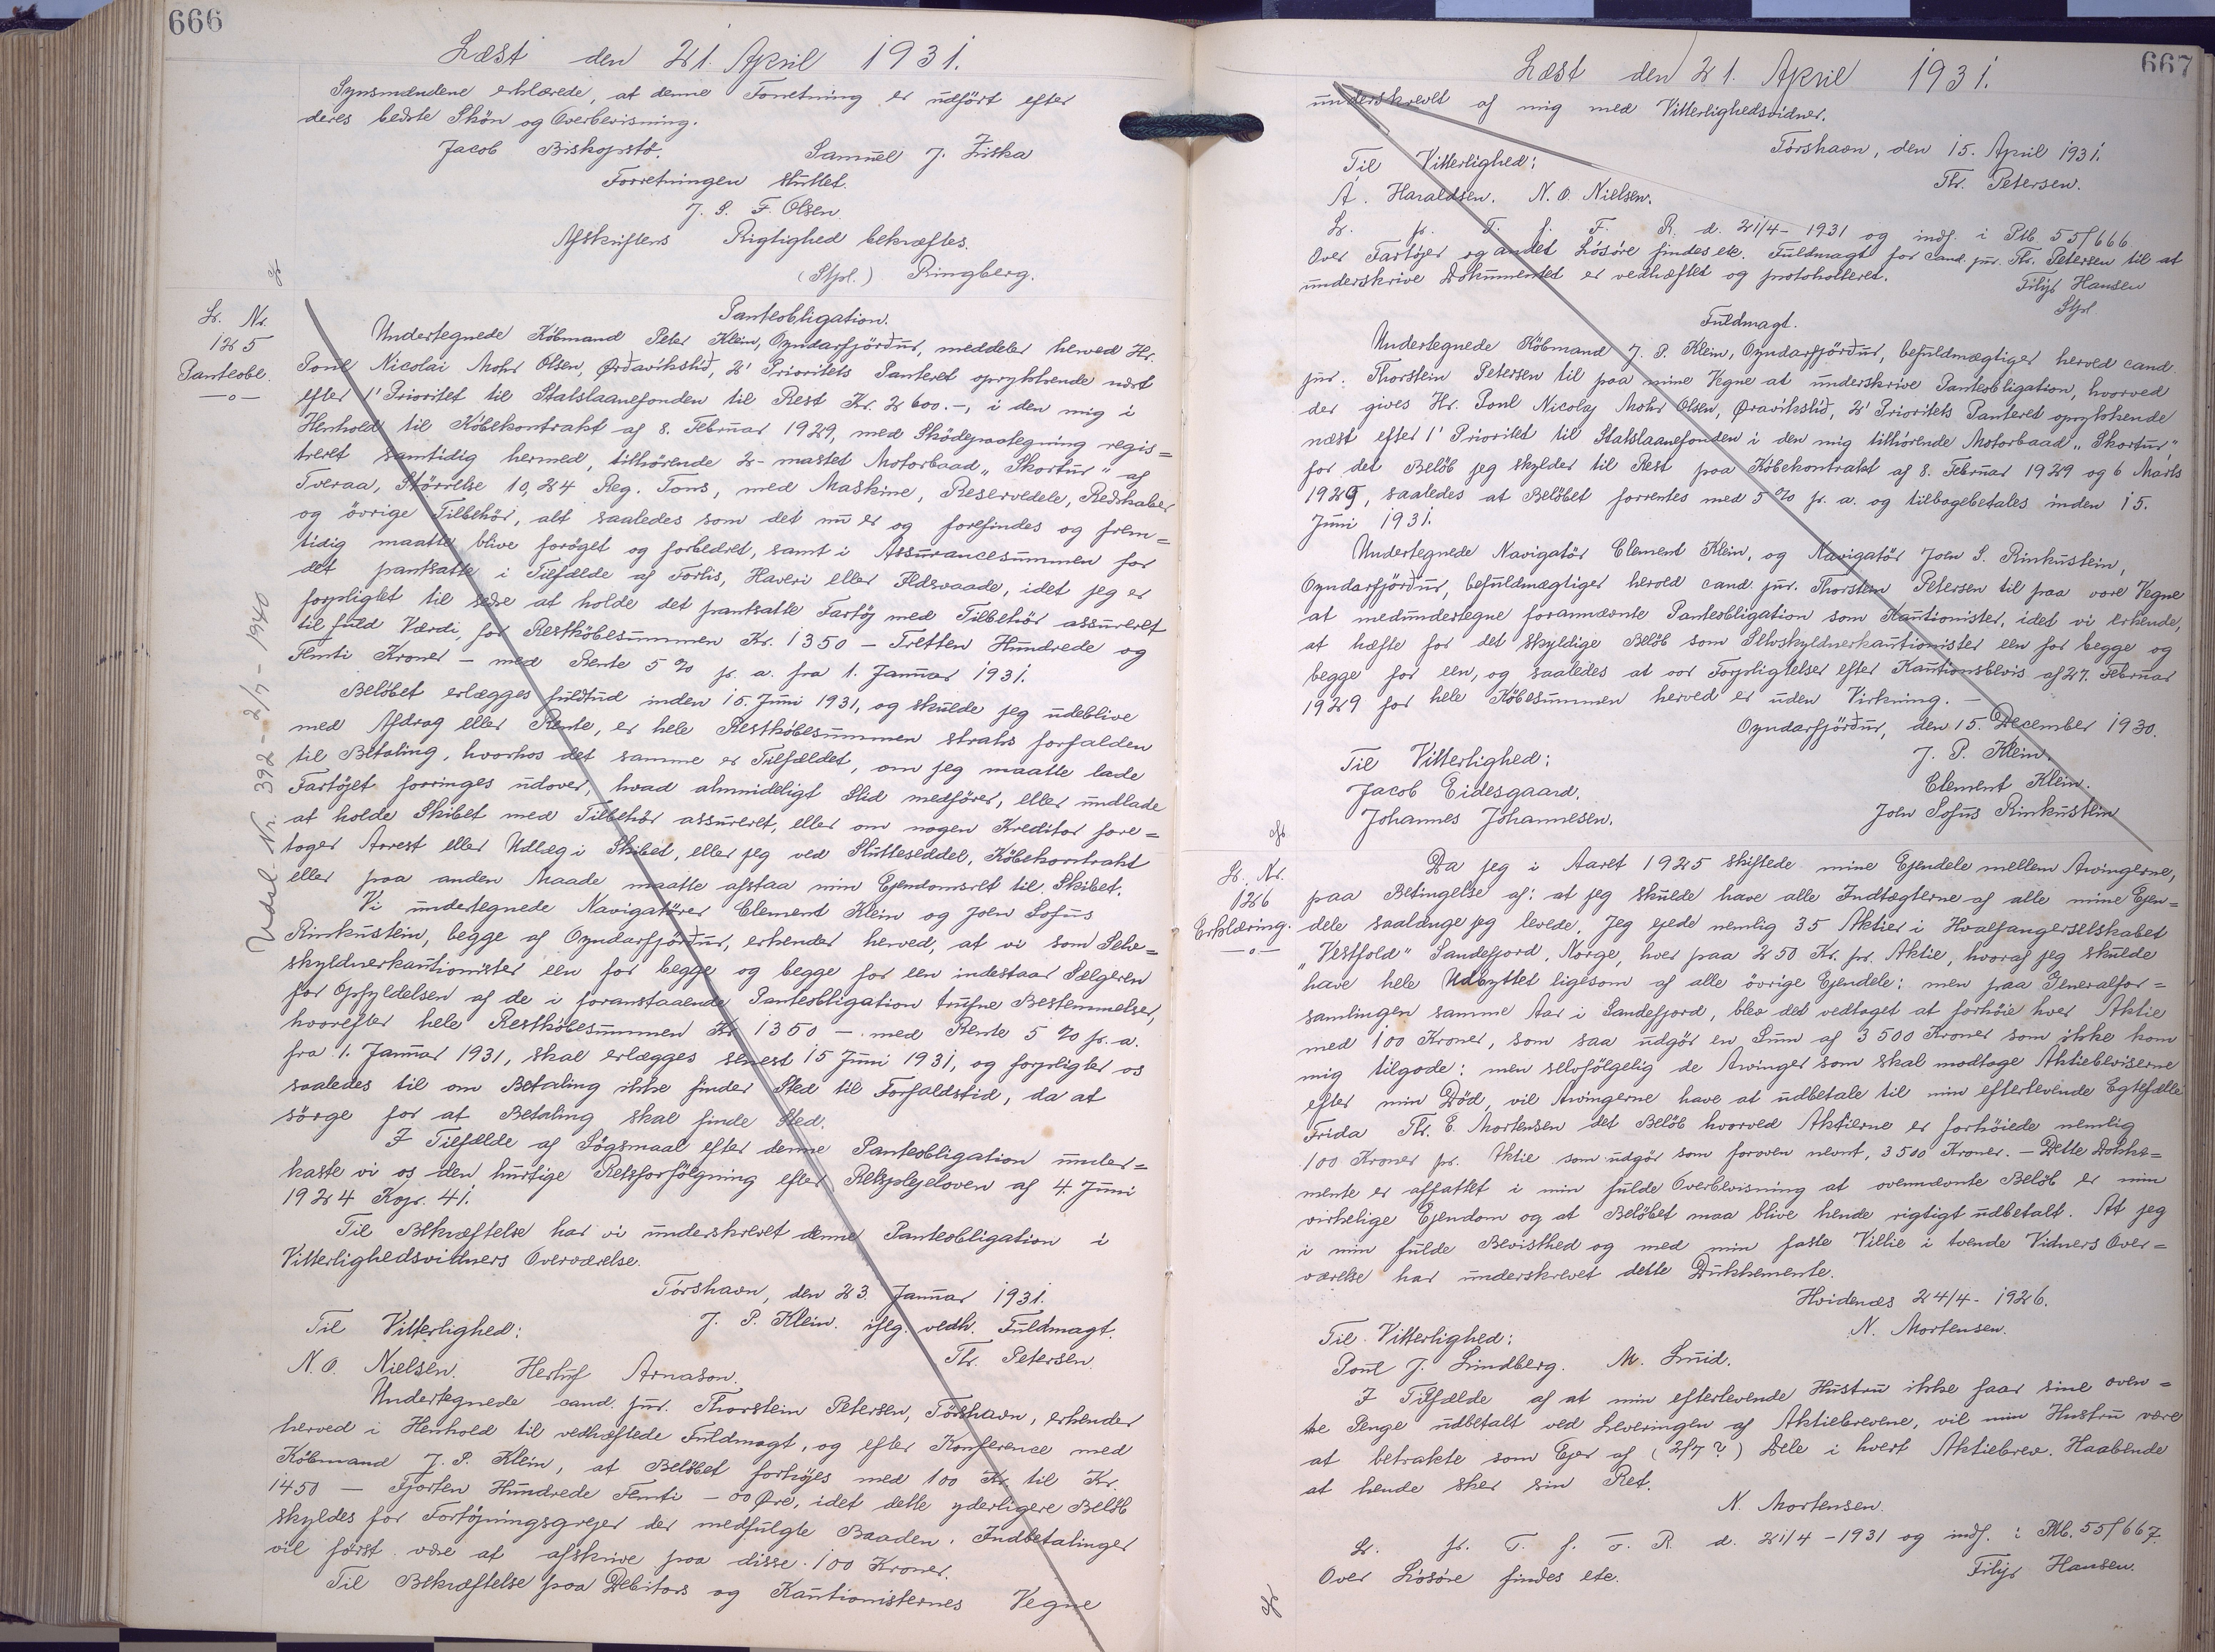 666
Læst den 21. April 1931.
Synsmændene erklærede, at denne Forretning er udført efter
deres bedste Skön og Overbevisning.
Jacob Biskopstö. Samuel J. Ziska
Forretningen sluttet.
J. S. F. Olsen.
Afskriftens Rigtighed bekræftes.
(Stpl.) Ringberg.
Lb. Nr.
125
Panteobl.
Udsl. Nr. 392 - 2/7 - 1940
Panteobligation.
Undertegnede Köbmand Peter Klein, Oyndarfjörður, meddeler herved Hr.
Poul Nicolai Mohr Olsen, Ørðavikslið, 2' Prioritets Panteret oprykkende næst
efter 1' Prioritet til Statslaanefonden til Rest Kr. 2600.-, i den mig i
Henhold til Köbekontrakt af 8. Februar 1929, med Sködepaategning regis=
treret samtidig hermed, tilhörende 2-mastet Motorbaad „Skortur" af
Tveraa, Störrelse 10,24 Reg. Tons, med Maskine, Reservedele, Redskaber
og övrige Tilbehör, alt saaledes som det nu er og forefindes og frem=
tidig maatte blive foröget og forbedret, samt i Assurancesummen for
det pantsatte i Tilfælde af Forlis, Haveri eller Ildsvaade, idet jeg er
forpligtet til sedse at holde det pantsatte Fartöj med Tilbehör assureret
til fuld Værdi, for Restköbesummen Kr. 1350 - Tretten Hundrede og
Femti Kroner - med Rente 5 % pr. a. fra 1. Januar 1931.
Belöbet erlægges fuldtud inden 15. Juni 1931, og skulde jeg udeblive
med Afdrag eller Rente, er hele Restköbesummen straks forfalden
til Betaling, hvorhos det samme er Tilfældet, om jeg maatte lade
Fartöjet forringes udover, hvad almindeligt Slid medförer, eller undlade
at holde Skibet med Tilbehör assureret, eller om nogen Kreditor fore=
tager Arrest eller Udlæg i Skibet, eller jeg ved Slutteseddel, Köbekontrakt
eller paa anden Maade maatte afstaa min Ejendomsret til Skibet.
Vi undertegnede Navigatörer Clement Klein og Joen Sofus
Rinkustein, begge af Oyndarfjörður, erkender herved, at vi som Selv=
skyldnerkautionister een for begge og begge for een indestaar Sælgeren
for Opfyldelsen af de i foranstaaende Panteobligation trufne Bestemmelser,
hvorefter hele Restköbesummen Kr 1350 - med Rente 5 % pr. a.
fra 1. Januar 1931, skal erlægges senest 15 Juni 1931, og forpligter os
saaledes til om Betaling ikke finder Sted til Forfaldstid, da at
sörge for at Betaling skal finde Sted.
I Tilfælde af Sögsmaal efter denne Panteobligation under=
kaste vi os den hurtige Retsforfölgning efter Retsplejeloven af 4. Juni
1924 Kap. 41.
Til Bekræftelse har vi underskrevet denne Panteobligation i
Vitterlighedsvidners Overværelse.
Torshavn, den 23. Januar 1931.
Til Vitterlighed: J. P. Klein. iflg. vedh. Fuldmagt.
N. O. Nielsen. Herluf Arnason. Th. Petersen.
Undertegnede cand. jur. Thorstein Petersen, Törshavn, erkender
herved i Henhold til vedhæftede Fuldmagt, og efter Konference med
Köbmand J. P. Klein, at Belöbet forhöjes med 100 Kr. til Kr.
1450 - Fjorten Hundrede Femti - 00 Øre, idet dette yderligere Belöb
skyldes for Fortöjningsgrejer der medfulgte Baaden. Indbetalinger
vil först være at afskrive paa disse 100 Kroner.
Til Bekræftelse paa Debitors og Kautionisternes Vegne
667
Læst den 21. April 1931.
underskrevet af mig med Vitterlighedsvidner.
Torshavn, den 15. April 1931.
Til Vitterlighed: Th. Petersen.
A. Haraldsen. N. O. Nielsen.
L. pr. T. f. F. R. d. 21/4- 1931 og indf. i Ptb. 55f666.
Over Fartöjer og andet Lösöre findes etc. Fuldmagt for cand. jur. Th. Petersen til at
underskrive Dokumentet er vedhæftet og protokolleret.
Filip Hansen
Stpl
Fuldmagt.
Undertegnede Köbmand J. P. Klein, Oyndarfjörður, befuldmægtiger herved cand.
jur. Thorstein Petersen til paa mine Vegne at underskrive Panteobligation, hvorved
der gives Hr. Poul Nicolaj Mohr Olsen, Øravikslið, 2' Prioritets Panteret oprykkende
næst efter 1' Prioritet til Statslaanefonden i den mig tilhörende Motorbaad „Skortur",
for det Belöb jeg skylder til Rest paa Köbekontrakt af 8. Februar 1929 og 6 Marts
1929, saaledes at Belöbet forrentes med 5 % pr. a. og tilbagebetales inden 15.
Juni 1931.
Undertegnede Navigatör Clement Klein, og Navigatör Joen S. Rinkustein,
Oyndarfjörður, befuldmægtiger herved cand. jur. Thorstein Petersen til paa vore Vegne
at medundertegne forannævnte Panteobligation som Kautionister, idet vi erkende,
at hæfte for det skyldige Belöb som Selvskyldnerkautionister een for begge og
begge for een, og saaledes at vor Forpligtelser efter Kautionsbevis af 27. Februar
1929 for hele Köbesummen herved er uden Virkning. -
Oyndarfjörður, den 15. December 1930.
Til Vitterlighed: J. P. Klein.
Jacob Eidesgaard. Clement Klein.
Johannes Johannesen. Joen Sofus Rinkustein
Lb. Nr.
126
Erklæring.
Da jeg i Aaret 1925 skiftede mine Ejendele mellem Arvingerne,
paa Betingelse af: at jeg skulde have alle Indtægterne af alle mine Ejen=
dele saalænge jeg levede. Jeg ejede nemlig 35 Aktier i Hvalfangerselskabet
„Vestfold" Sandefjord, Norge, hver paa 250 Kr. pr. Aktie, hvoraf jeg skulde
have hele Udbyttet ligesom af alle övrige Ejendele: men paa Generalfor=
samlingen samme Aar i Sandefjord, blev det vedtaget at forhöie hver Aktie
med 100 Kroner, som saa udgör en Sum af 3500 Kroner som ikke kom
mig tilgode: men selvfölgelig de Arvinger som skal modtage Aktiebeviserne
efter min Död, vil Arvingerne have at udbetale til min efterlevende Egtefælle
Frida Th. E. Mortensen det Belöb hvorved Aktierne er forhöiede nemlig
100 Kroner pr. Aktie som udgör som foroven nevnt, 3500 Kroner. - Dette Dokke=
mente er affattet i min fulde Overbevisning at ovennævnte Belöb er min
virkelige Ejendom og at Belöbet maa blive hende rigtigt udbetalt. At jeg
i min fulde Bevisthed og med min faste Villie i tvende Vidners Over=
værelse har underskrevet dette Dukkemente.
Hvidenæs 24/4- 1926.
Til Vitterlighed: N. Mortensen.
Poul J. Lindberg. M. Smid.
I Tilfælde af at min efterlevende Hustru ikke faar sine oven=
tte Penge udbetalt ved Leveringen af Aktiebrevene, vil min Hustru være
at betrakte som Ejer af (2/7?) Dele i hvert Aktiebrev. Haabende
at hende sker sin Ret.
N. Mortensen.
L. pr. T. f. F. R. d. 21/4 - 1931 og indf. i Ptb. 55f667.
Over Lösöre findes etc. Filip Hansen.